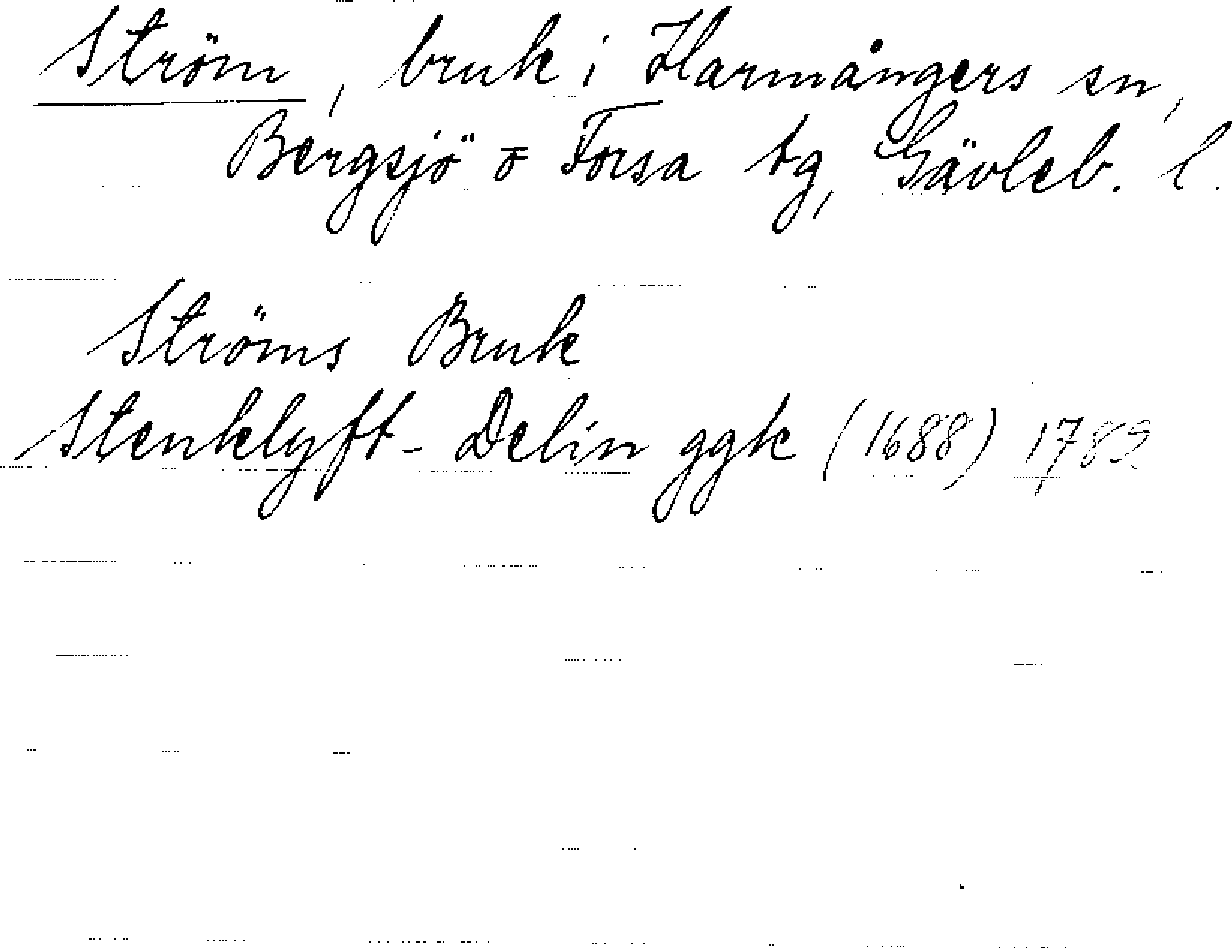 Ström, bruk i Harmångers sn,
Bergsjö o Forsa tg, Gävleb. l.
Ströms Bruk
Stenklyft-Delin ggk (1688) 1789